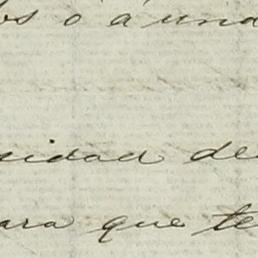 os ó á una
sidad de
ara que te